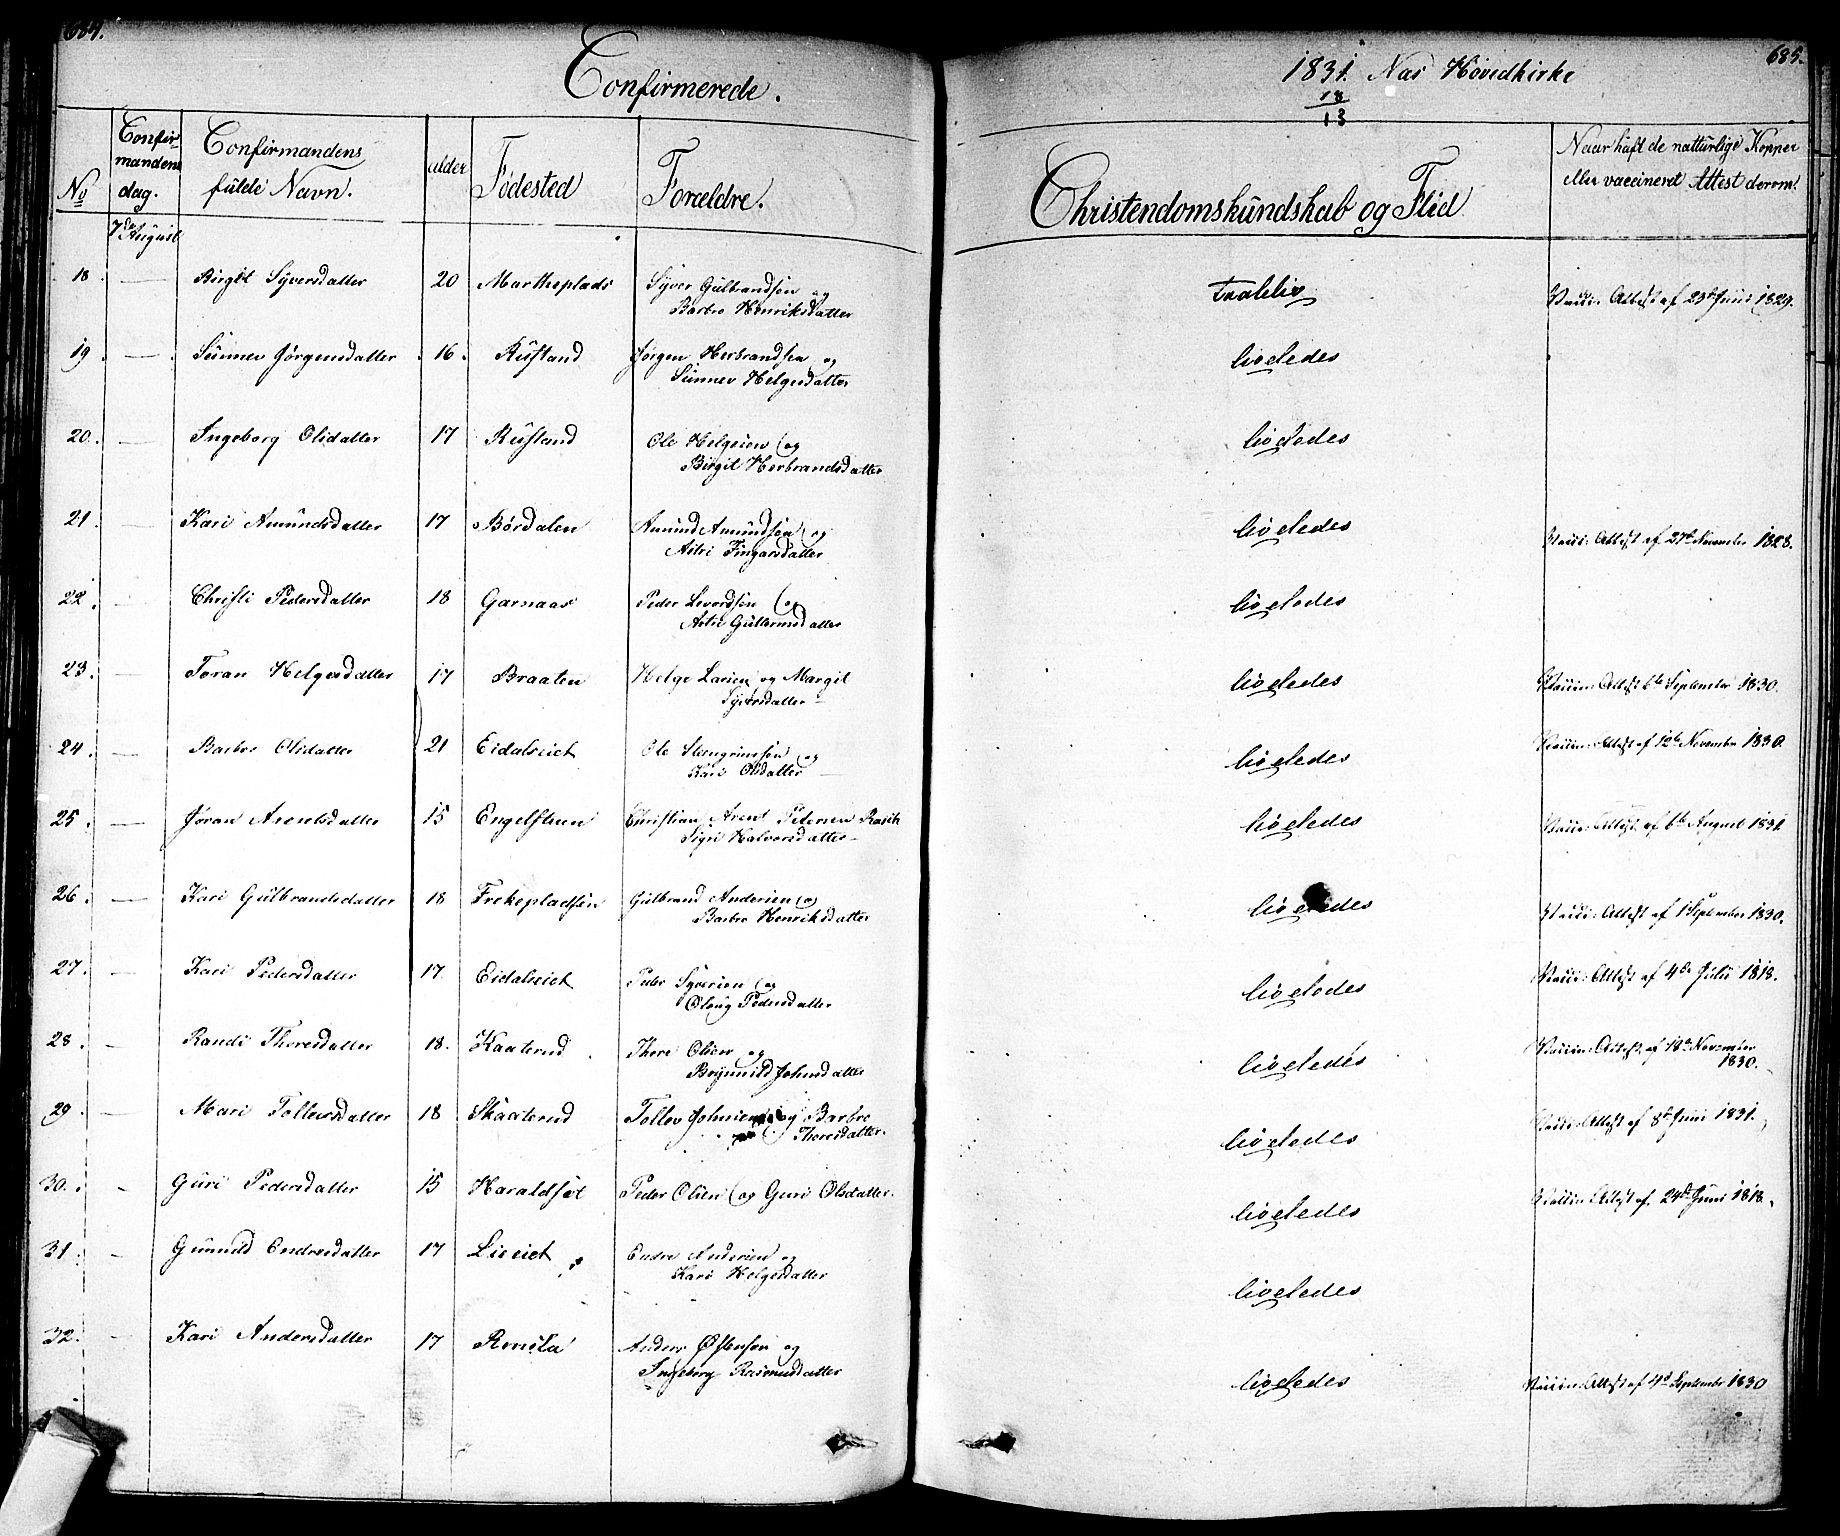 684.
Confirmerede.
No
Confirmandens dag.
Confirmandens fulde Navn.
alder
Fødested
Forældre.
7de August
18 — Birgit Syversdatter 20 Martheplads Syver Gulbrandsen og
Barbro Henriksdatter
19 — Sünnev Jørgensdatter 16. Rustand Jørgen Herbrandsen og
Sünnev Helgesdatter
20. — Ingeborg Olsdatter 17 Rustand Ole Helgesen og
Birgit Herbrandsdatter
21. — Kari Amundsdatter 17 Børdalen Amund Amundsen og
Astri Fingarsdatter
22. — Christi Pedersdatter 18 Garnaas Peder Levordsen og
Astri Guttormsdatter
23. — Joran Helgesdatter 17 Braaten Helge Larsen og Margit
Syversdatter
24. — Barbro Olsdatter 21 Eidalseiet Ole Steengrimsen og
Kari Olsdatter
25. — Jøran Arentsdatter 15 Engelstuen Christian Arent Petersen Rasch
Sigri Halvorsdatter
26. — Kari Gulbrandsdatter 18 Frekepladsen Gulbrand Andersen og
Barbro Henriksdatter
27. — Kari Pedersdatter 17. Eidalseiet Peder Syversen og
Olaug Pedersdatter
28. — Randi Thoresdatter 18. Kaaterud Thore Olsen og
Brynnild Johnsdatter
29. — Mari Tollevsdatter 18 Skaaterud Tollev Johnsen og Barbro
Thoresdatter.
30. — Guri Pedersdatter 15 Haraldset Peder Olsen og Guri Olsdatter.
31. — Gunnild Endresdatter 17 Lieeiet Endre Andersen og
Kari Helgesdatter
32. — Kari Andersdatter 17 Anders Østensen og
Ingeborg Rasmusdatter
685.
1831. Næs Hovedkirke
18
13
Christendomskundskab og Flid
Naar haft de naturlige Kopper
eller vaccineret Attest derom.
Vacci: Attest af 23de Juni 1829.
ligeledes
ligeledes
ligeledes Vacci: Attest af 27de November 1828.
ligeledes
ligeledes Vaccin: Attest 6te September 1830.
ligeledes Vaccin: Attest af 12te November 1830.
ligeledes Vacci: Attest af 6te August 1831
ligeledes Vacci: Attest af 1 September 1830.
ligeledes Vacci: Attest af 4de Julii 1818.
ligeledes Vaccin: Attest af 18de November
1830.
ligeledes Vacci: Attest af 8de Juni 1831.
ligeledes Vaccin Attest af 24de Juni 1818.
ligeledes
ligeledes Vaccin: Attest af 4de September 1830